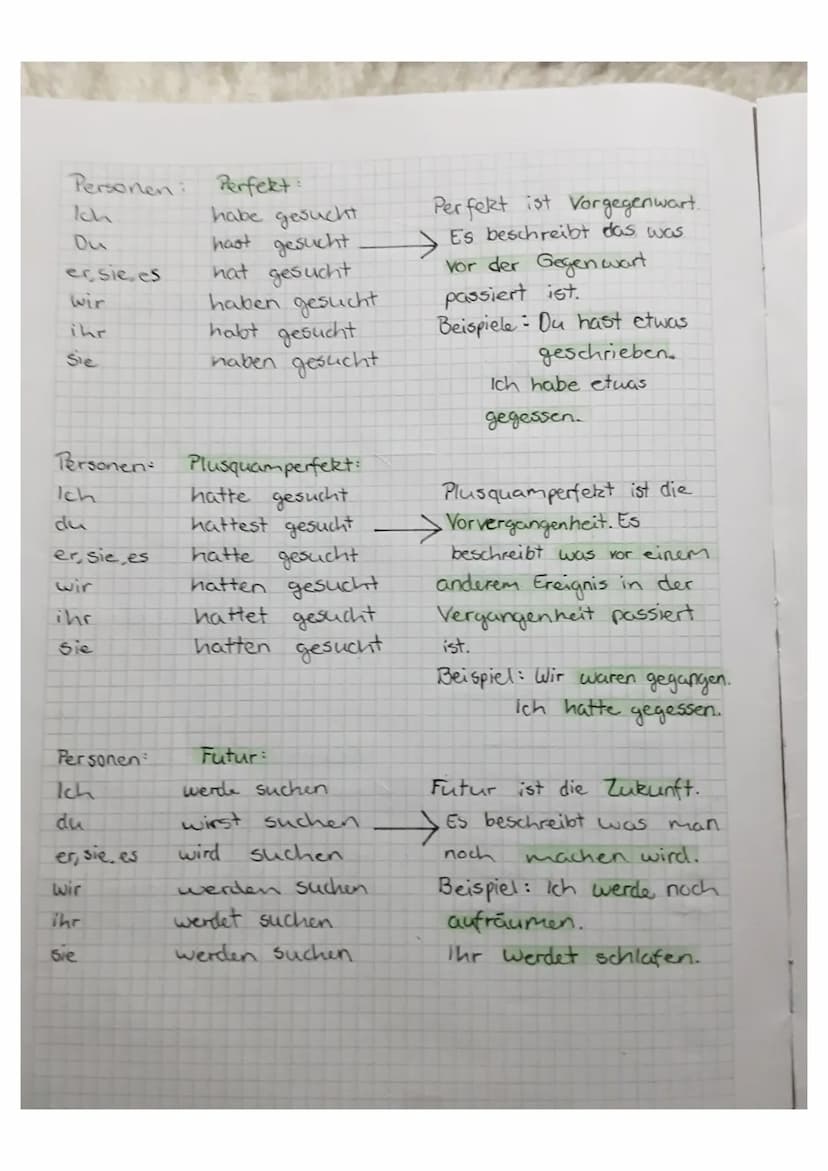 Personen: Perfekt:
Ich habe gesucht
Du hast gesucht
er, sie, es hat gesucht
wir haben gesucht
ihr habt gesucht
sie haben gesucht
Perfekt ist Vorgegenwart.
Es beschreibt das was
vor der Gegenwart
passiert ist.
Beispiele: Du hast etwas
geschrieben.
Ich habe etwas
gegessen.
Personen: Plusquamperfekt:
Ich hatte gesucht
du hattest gesucht
er, sie, es hatte gesucht
wir hatten gesucht
ihr hattet gesucht
sie hatten gesucht
Plusquamperfekt ist die
Vorvergangenheit. Es
beschreibt was vor einem
anderem Ereignis in der
Vergangenheit passiert
ist.
Beispiel: Wir waren gegangen.
Ich hatte gegessen.
Personen: Futur:
Ich werde suchen
du wirst suchen
er, sie, es wird suchen
wir werden suchen
ihr werdet suchen
sie werden suchen
Futur ist die Zukunft.
Es beschreibt was man
noch machen wird.
Beispiel: Ich werde noch
aufräumen.
Ihr werdet schlafen.